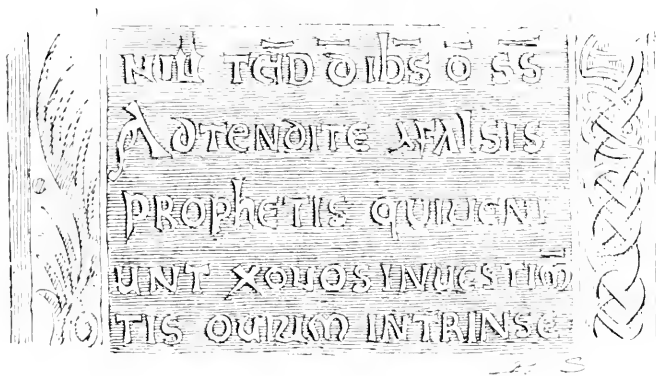 ADTENDITE AFALSIS
PROPHETIS QUIUENI
UNT ADUOS INUESTIM̄
TIS OUIUM INTRINSE